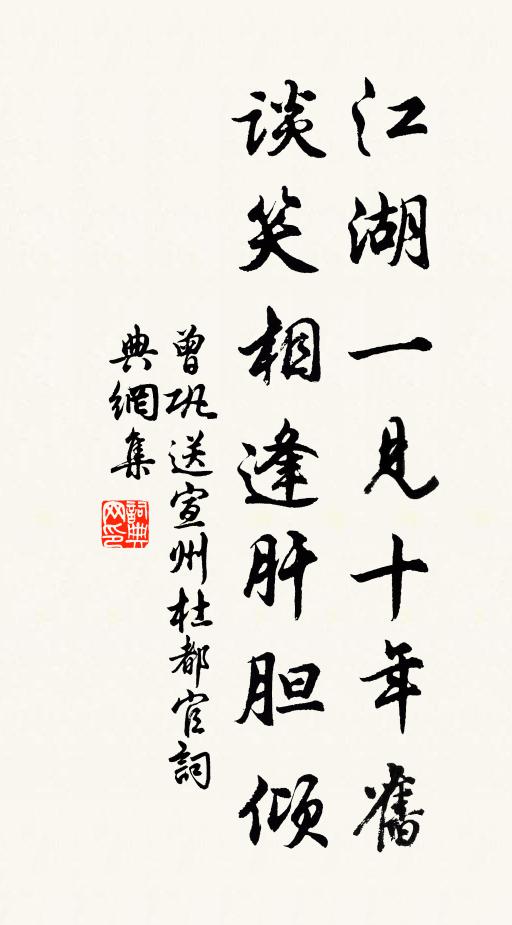 江湖一见十年舊
谈笑相逢肝胆倾
曾巩送宣州杜都官詞
典網集
詞典网印